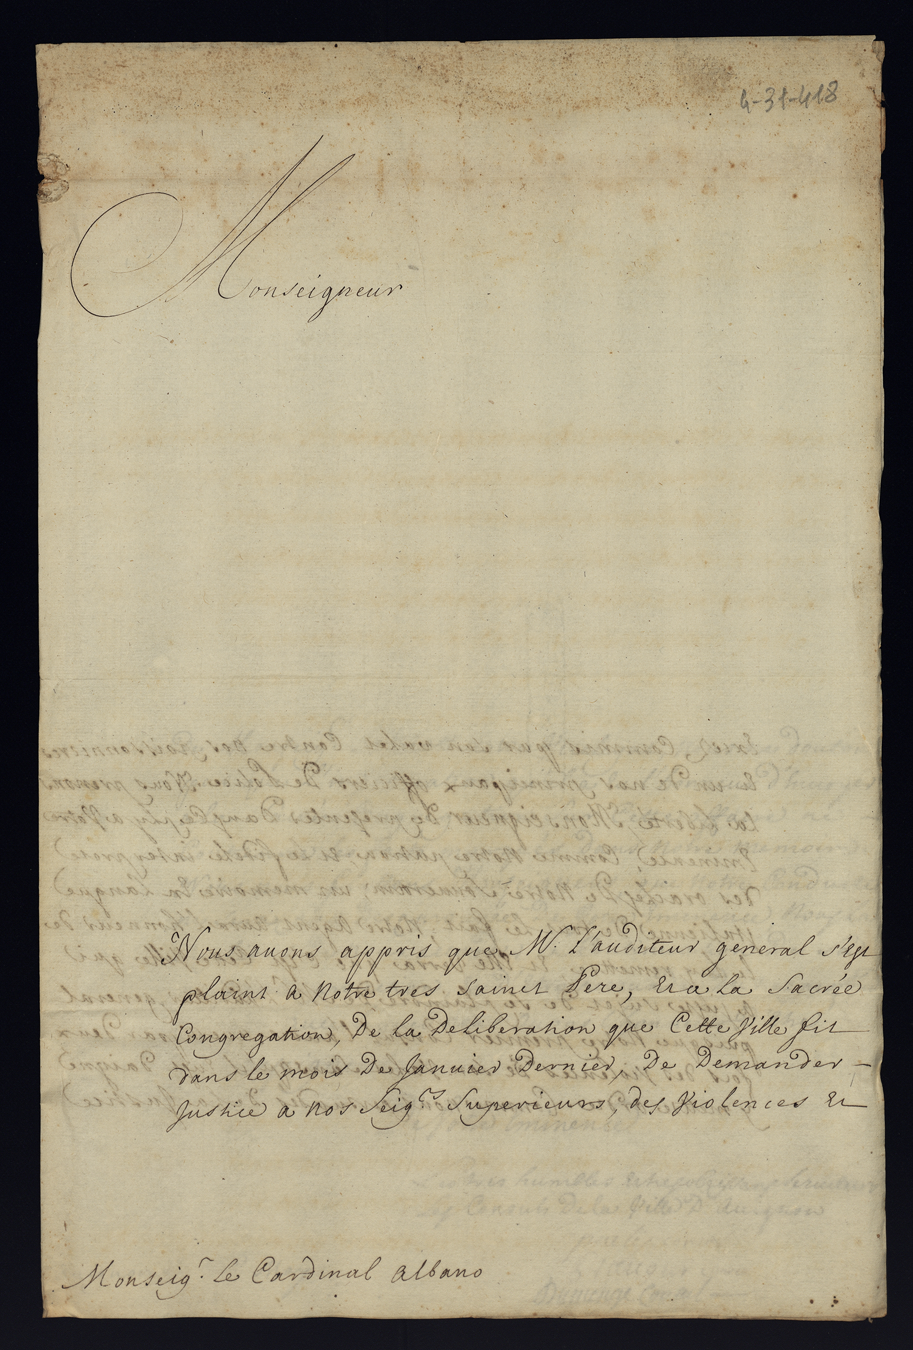 4-31-418
Monseigneur
Nous auons appris que Mr. L'auditeur general s'est
plaint a Notre tres sainct Pere, Et a La Sacrée
Congregation, De la Deliberation que Cette Ville fit
dans le mois De Januier Dernier De Demander
Justice a nos Seigrs Superieurs, des Violences Et
Monseigr. Le Cardinal Albano